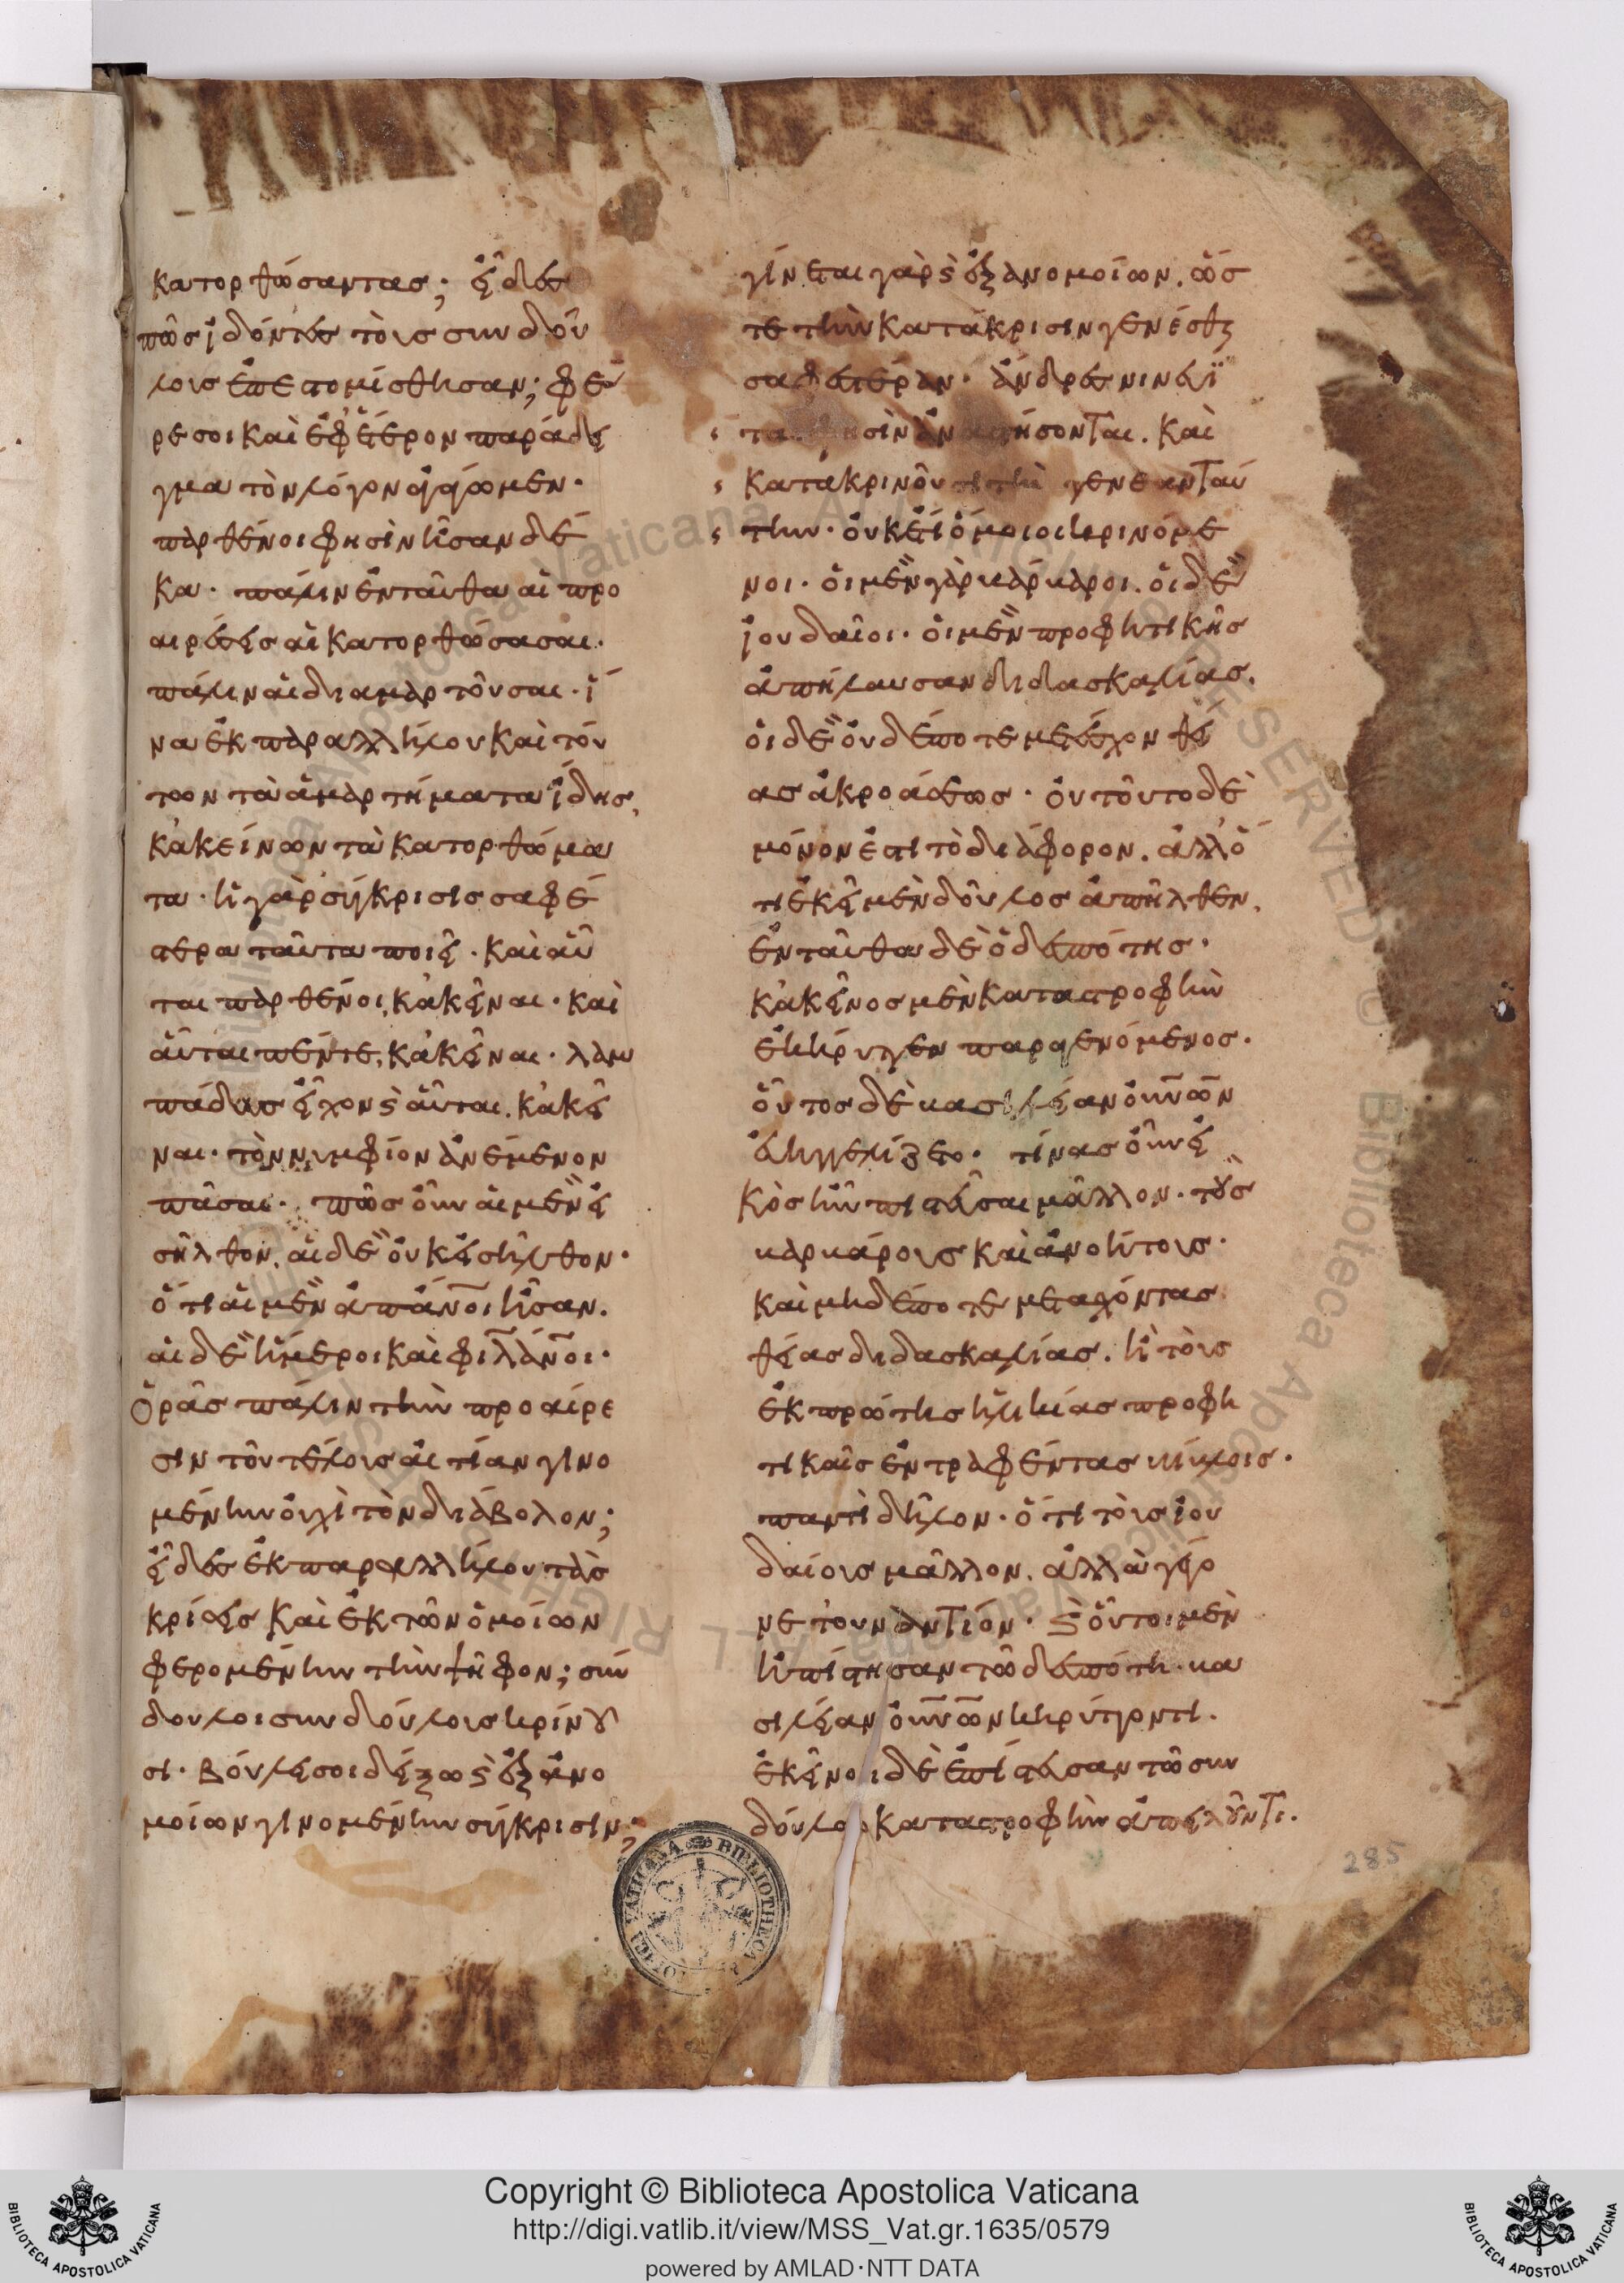 κατορθώσαντας; εἶδες
πῶς ἰδόντες τοῖς συνδού
λοις ἐπεστομίσθησαν; φέ
ρε σοι καὶ ἐφ' ἕτερον παράδει
γμα τὸν λόγον ἀγάγωμεν·
παρθένοι φησὶν ἦσαν δέ
κα· πάλιν ἐνταῦθα αἱ προ
αιρέσεις αἱ κατορθώσασαι·
πάλιν αἱ διαμαρτοῦσαι· ἵ
να ἐκ παραλλήλου καὶ τού
των τὰ ἁμαρτήματα ἴδης,
κἀκείνων τὰ κατορθώμα
τα· ἡ γὰρ σύγκρισις σαφέ
στερα ταῦτα ποιεῖ· καὶ αὗ
ται παρθένοι, κἀκεῖναι· καὶ
αὗται πέντε, κἀκεῖναι· λαμ
πάδας εἶχον καὶ αὗται, κἀκεῖ
ναι· τὸν νυμφίον ἀνέμενον
πᾶσαι· πῶς οὖν αἱ μὲν εἰ
σῆλθον, αἱ δὲ οὐκ εἰσῆλθον·
ὅτι αἱ μὲν ἀπάνοι ἦσαν.
αἱ δὲ ἥμεροι καὶ φιλάνοι·
Ὁρᾶς πάλιν τὴν προαίρε
σιν τοῦ τέλους αἰτίαν γινο
μένην οὐχὶ τὸν διάβολον;
εἶδες ἐκ παραλλήλου τὰς
κρίσεις καὶ ἐκ τῶν ὁμοίων
φερομένην τὴν ψῆφον; σύν
δουλοι συνδούλοις κρίνου
σι· βούλει σοι δείξω καὶ ἐξ ἀνο
μοίων γινομένην σύγκρισιν;
γίνεται γὰρ καὶ ἐξ ἀνομοίων. ὥσ
τε τὴν κατάκρισιν γενέσθαι
σαφεστέραν· ἄνδρες νινευῖ
ται φησὶν ἀναστήσονται. καὶ
κατακρινοῦσι τὴν γενεὰν ταύ
την· οὐκέτι ὅμοιοι κρινόμε
νοι· οἱ μὲν γὰρ βάρβαροι. οἱ δὲ
ἰουδαῖοι· οἱ μὲν προφητικῆς
ἀπήλαυσαν διδασκαλίας.
οἱ δὲ οὐδέποτε μετέσχον θεί
ας ἀκροάσεως· οὐ τοῦτο δὲ
μόνον ἐστὶ τὸ διάφορον. ἀλλ' ὅ
τι ἐκεῖ μὲν δοῦλος ἀπῆλθεν,
ἐνταῦθα δὲ ὁ δεσπότης·
κἀκεῖνος μὲν καταστροφὴν
ἐκήρυξεν παραγενόμενος·
οὗτος δὲ βασιλείαν οὐνῶν
εὐηγγελίζετο· τίνας οὖν εἰ
κὸς ἦν πιστεῦσαι μᾶλλον· τοὺς
βαρβάρους καὶ ἀνοήτους·
καὶ μηδέποτε μετασχόντας
θείας διδασκαλίας. ἢ τοὺς
ἐκ πρώτης ἡλικίας προφη
τικαῖς ἐντραφέντας βίβλοις·
παντὶ δῆλον· ὅτι τοὺς ἰου
δαίους μᾶλλον. ἀλλὰ γέγο
νε τοὐναντίον· καὶ οὗτοι μὲν
ἠπίστησαν τῶ δεσπότη βα
σιλείαν οὐνῶν κηρύττοντι.
ἐκεῖνοι δὲ ἐπίστευσαν τῶ συν
δούλω καταστροφὴν ἀπειλοῦντι.
285
BIBLIOTHECA VATICANA
Copyright © Biblioteca Apostolica Vaticana
http://digi.vatlib.it/view/MSS_Vat.gr.1635/0579
powered by AMLAD·NTT DATA
BIBLIOTECA APOSTOLICA VATICANA
BIBLIOTECA APOSTOLICA VATICANA